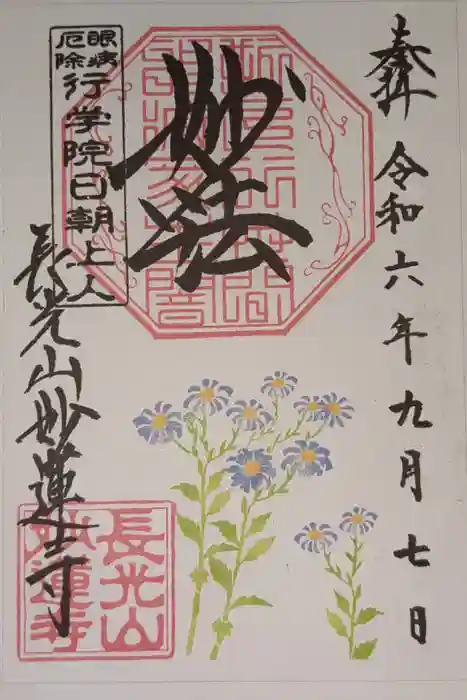 奉拝 令和六年九月七日
妙法
眼病
厄除
行学院日朝上人
長光山妙蓮寺
長光山
妙蓮寺